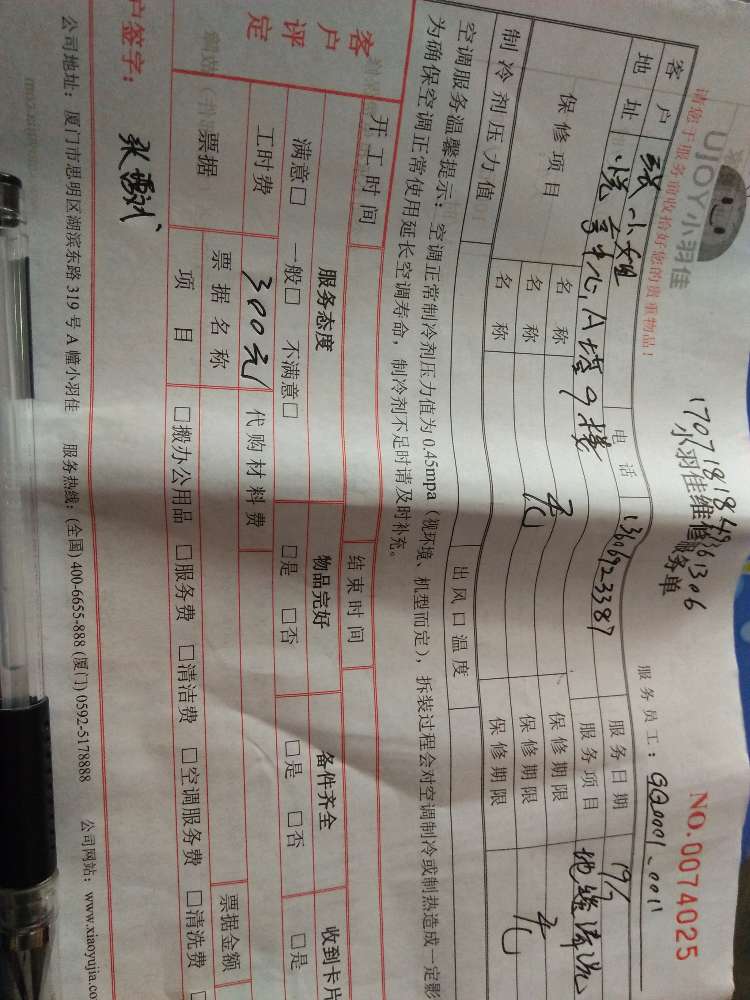 UJOY小羽佳
请您于服务前收拾好您的贵重物品！
17071818493 61306
小羽佳维修服务单
服务员工：GQ0001_0011
NO.0074025
客户 张小姐 电话 13606923387 服务日期 19/7
地址 悦享中心,A塔9楼 服务项目 地毯清洗
保修项目 名称 保修期限
名称 无 保修期限 无
名称 保修期限
制冷剂压力值 出风口温度
空调服务温馨提示：空调正常制冷剂压力值为0.45mpa（视环境、机型而定），拆装过程会对空调制冷或制热造成一定影
为确保空调正常使用延长空调寿命，制冷剂不足时请及时补充。
开工时间 结束时间
客户评定 服务态度 物品完好 备件齐全 收到卡片
满意□ 一般□ 不满意□ □是 □否 □是 □否 □是
工时费 300元 代购材料费
票据 票据名称 票据金额
项目 □搬办公用品 □服务费 □清洁费 □空调服务费 □清洗费
户签字：
公司地址：厦门市思明区湖滨东路319号A幢小羽佳 服务热线：(全国) 400-6655-888 (厦门) 0592-5178888 公司网站：www.xiaoyujia.co